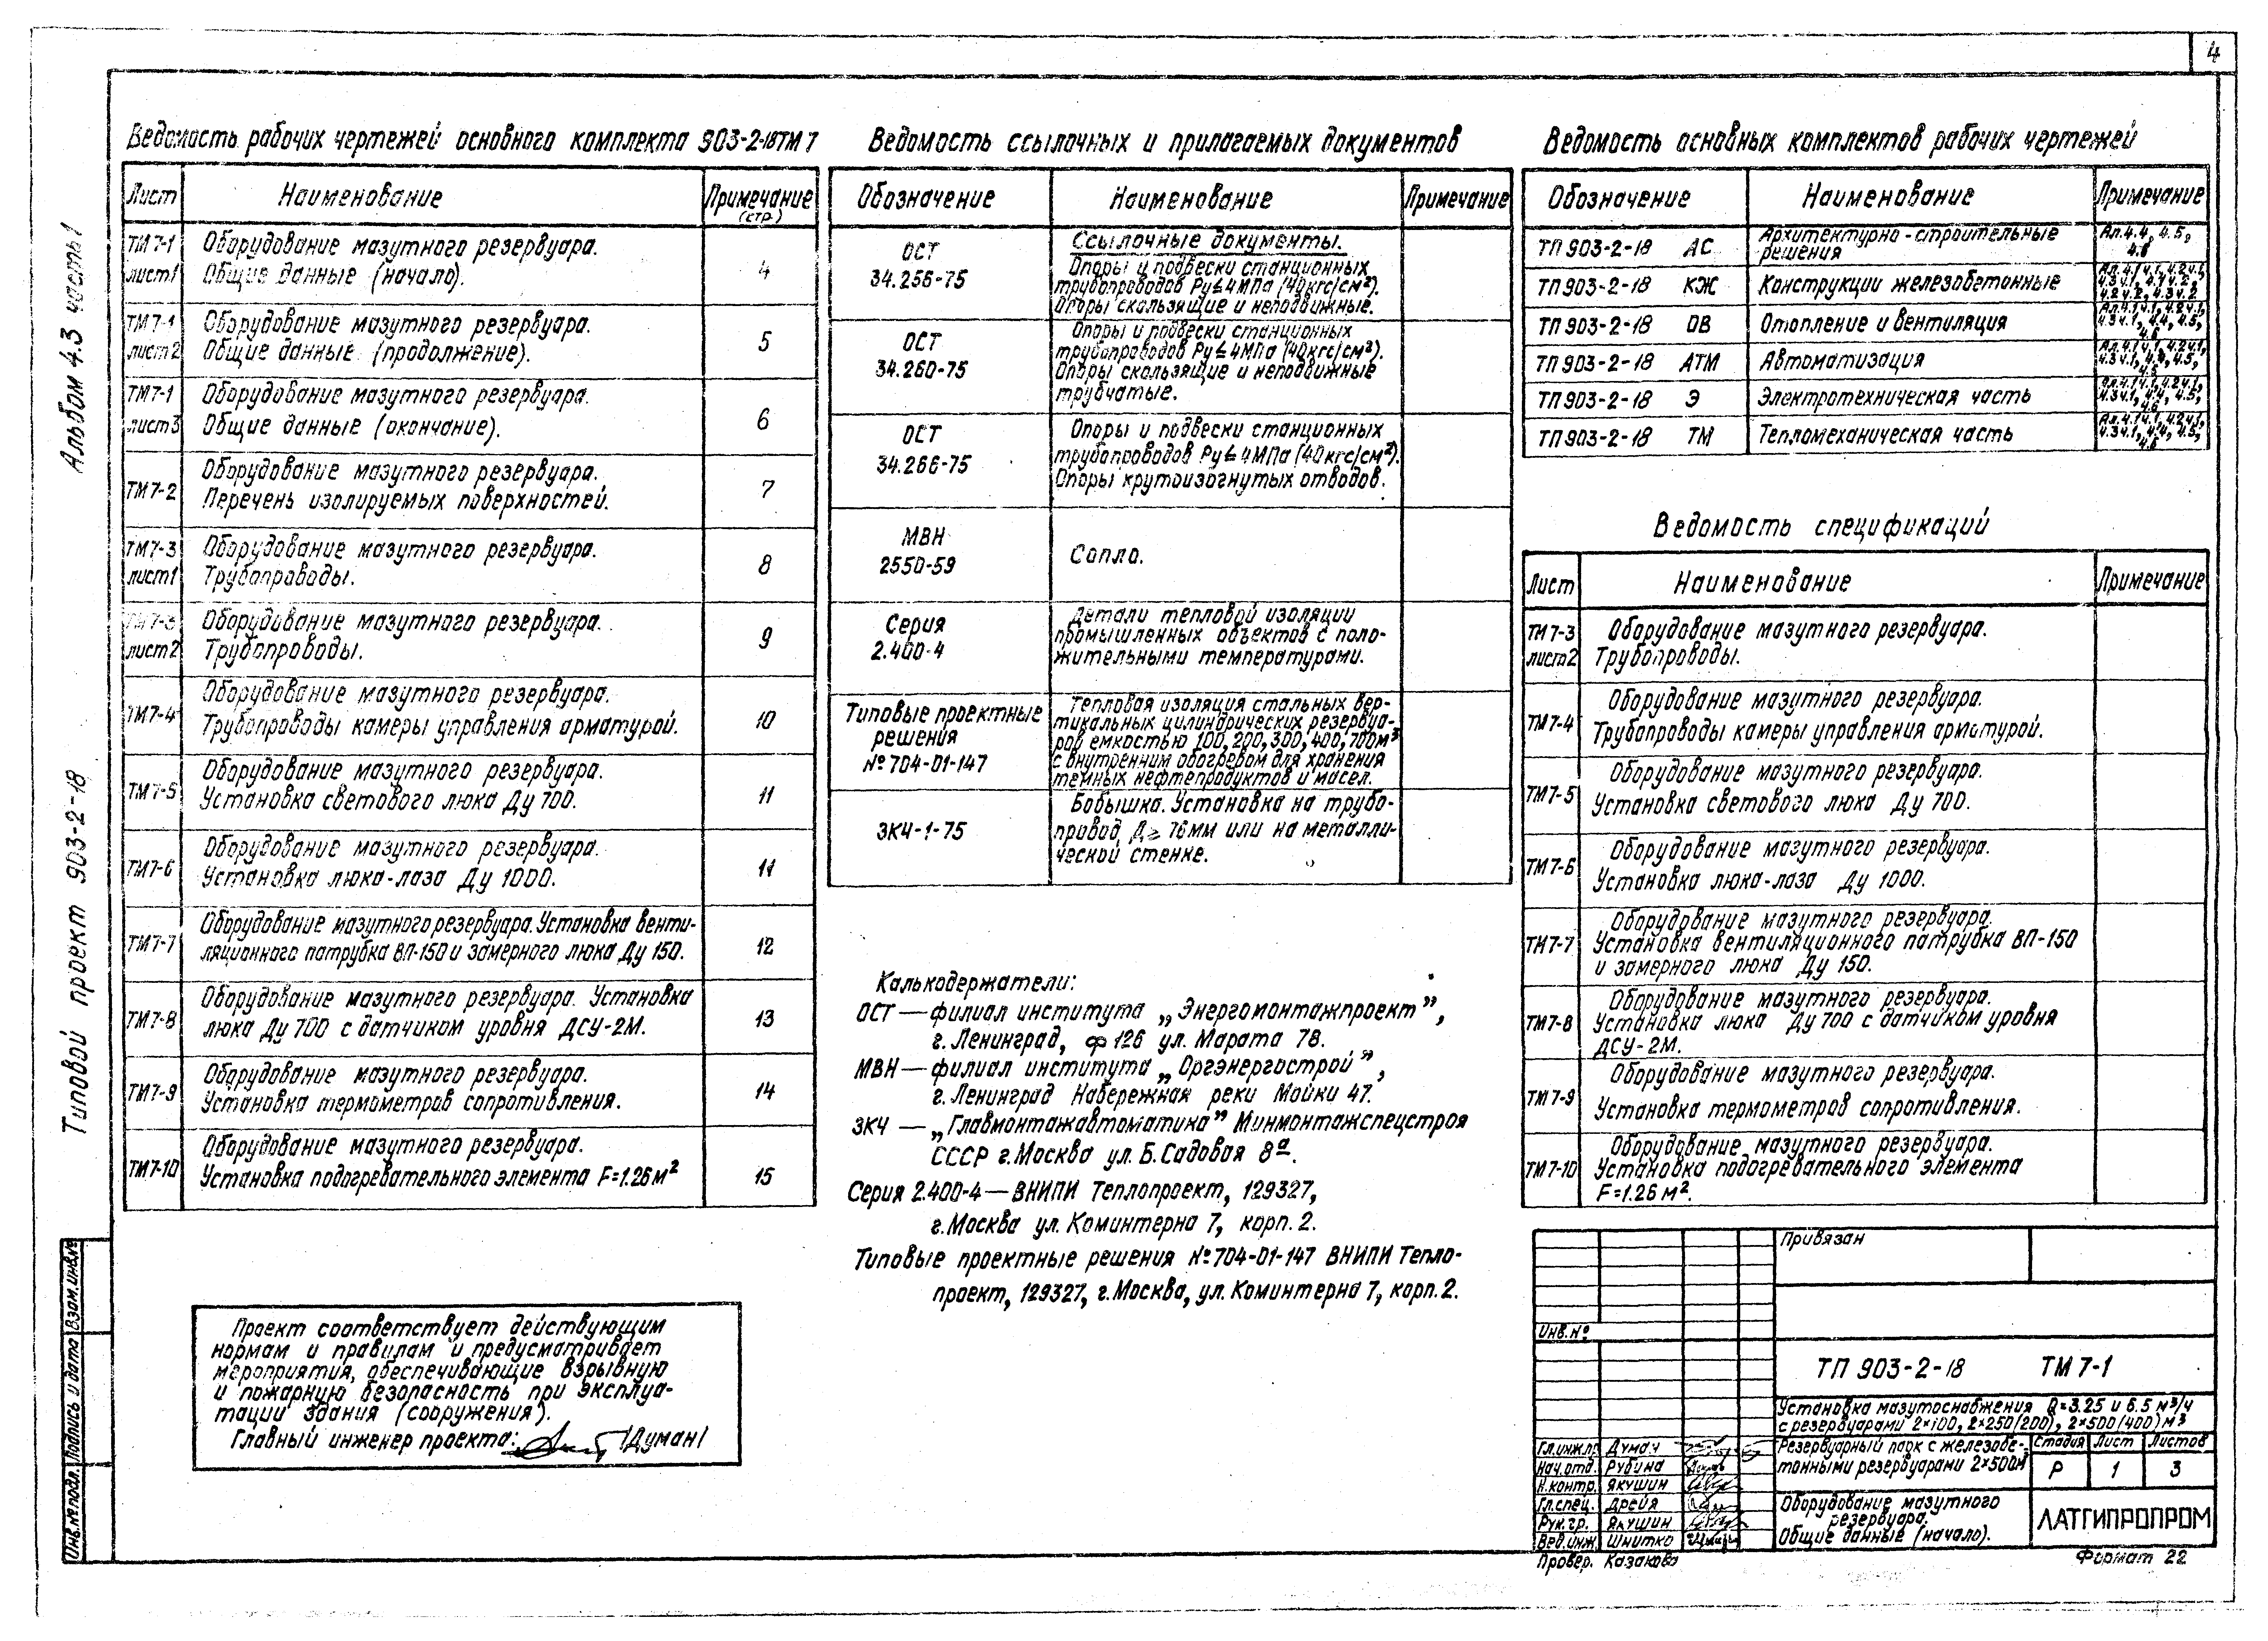 4
Альбом 4.3 часть 1
Типовой проект 903-2-18
Ведомость рабочих чертежей основного комплекта 903-2-18ТМ7
Лист Наименование Примечание (стр.)
ТМ7-1 Оборудование мазутного резервуара.
лист1 Общие данные (начало). 4
ТМ7-1 Оборудование мазутного резервуара.
лист2 Общие данные (продолжение). 5
ТМ7-1 Оборудование мазутного резервуара.
лист3 Общие данные (окончание). 6
Оборудование мазутного резервуара.
ТМ7-2 Перечень изолируемых поверхностей. 7
ТМ7-3 Оборудование мазутного резервуара.
лист1 Трубопроводы. 8
ТМ7-3 Оборудование мазутного резервуара.
лист2 Трубопроводы. 9
Оборудование мазутного резервуара.
ТМ7-4 Трубопроводы камеры управления арматурой. 10
Оборудование мазутного резервуара.
ТМ7-5 Установка светового люка Ду 700. 11
Оборудование мазутного резервуара.
ТМ7-6 Установка люка-лаза Ду 1000. 11
Оборудование мазутного резервуара. Установка венти-
ТМ7-7 ляционного патрубка ВП-150 и замерного люка Ду 150. 12
Оборудование мазутного резервуара. Установка
ТМ7-8 люка Ду 700 с датчиком уровня ДСУ-2М. 13
Оборудование мазутного резервуара.
ТМ7-9 Установка термометров сопротивления. 14
Оборудование мазутного резервуара.
ТМ7-10 Установка подогревательного элемента F=1.26 м² 15
Проект соответствует действующим
нормам и правилам и предусматривает
мероприятия, обеспечивающие взрывную
и пожарную безопасность при эксплуа-
тации здания (сооружения).
Главный инженер проекта: /Думан/
Ведомость ссылочных и прилагаемых документов
Обозначение Наименование Примечание
Ссылочные документы.
ОСТ
34.256-75
Опоры и подвески станционных
трубопроводов Ру≤4МПа (40кгс/см²).
Опоры скользящие и неподвижные.
ОСТ
34.260-75
Опоры и подвески станционных
трубопроводов Ру≤4МПа (40кгс/см²).
Опоры скользящие и неподвижные
трубчатые.
ОСТ
34.266-75
Опоры и подвески станционных
трубопроводов Ру≤4МПа (40кгс/см²).
Опоры крутоизогнутых отводов.
МВН
2550-59
Сопло.
Серия
2.400-4
Детали тепловой изоляции
промышленных объектов с поло-
жительными температурами.
Типовые проектные
решения
№704-01-147
Тепловая изоляция стальных вер-
тикальных цилиндрических резервуа-
ров емкостью 100, 200, 300, 400, 700м³
с внутренним обогревом для хранения
темных нефтепродуктов и масел.
ЗКЧ-1-75
Бобышка. Установка на трубо-
провод Д≥76мм или на металли-
ческой стенке.
Калькодержатели:
ОСТ — филиал института „Энергомонтажпроект”,
г. Ленинград, ф 126 ул. Марата 78.
МВН — филиал института „Оргэнергострой”,
г. Ленинград Набережная реки Мойки 47.
ЗКЧ — „Главмонтажавтоматика” Минмонтажспецстроя
СССР г. Москва ул. Б. Садовая 8ª.
Серия 2.400-4 — ВНИПИ Теплопроект, 129327,
г. Москва ул. Коминтерна 7, корп. 2.
Типовые проектные решения №704-01-147 ВНИПИ Тепло-
проект, 129327, г. Москва, ул. Коминтерна 7, корп. 2.
Ведомость основных комплектов рабочих чертежей
Обозначение Наименование Примечание
ТП 903-2-18 АС Архитектурно-строительные решения Ал. 4.4, 4.5, 4.6
ТП 903-2-18 КЖ Конструкции железобетонные Ал. 4.1 ч.1, 4.2 ч.1, 4.3 ч.1, 4.1 ч.2, 4.2 ч.2, 4.3 ч.2
ТП 903-2-18 ОВ Отопление и вентиляция Ал. 4.1 ч.1, 4.2 ч.1, 4.3 ч.1, 4.4, 4.5, 4.6
ТП 903-2-18 АТМ Автоматизация Ал. 4.1 ч.1, 4.2 ч.1, 4.3 ч.1, 4.4, 4.5,
ТП 903-2-18 Э Электротехническая часть Ал. 4.1 ч.1, 4.2 ч.1, 4.3 ч.1, 4.4, 4.5, 4.6
ТП 903-2-18 ТМ Тепломеханическая часть Ал. 4.1 ч.1, 4.2 ч.1, 4.3 ч.1, 4.4, 4.5, 4.6
Ведомость спецификаций
Лист Наименование Примечание
ТМ7-3 Оборудование мазутного резервуара.
лист2 Трубопроводы.
Оборудование мазутного резервуара.
ТМ7-4 Трубопроводы камеры управления арматурой.
Оборудование мазутного резервуара.
ТМ7-5 Установка светового люка Ду 700.
Оборудование мазутного резервуара.
ТМ7-6 Установка люка-лаза Ду 1000.
Оборудование мазутного резервуара.
ТМ7-7 Установка вентиляционного патрубка ВП-150
и замерного люка Ду 150.
Оборудование мазутного резервуара.
ТМ7-8 Установка люка Ду 700 с датчиком уровня
ДСУ-2М.
Оборудование мазутного резервуара.
ТМ7-9 Установка термометров сопротивления.
Оборудование мазутного резервуара.
ТМ7-10 Установка подогревательного элемента
F=1.26 м².
Привязан
Инв.№
ТП 903-2-18 ТМ 7-1
Установка мазутоснабжения Q=3.25 и 6.5 м³/ч
с резервуарами 2×100, 2×250(200), 2×500(400) м³
Гл.инж.пр. Думан
Нач.отд. Рубина
Н.контр. Якушин
Гл.спец. Дрейя
Рук.гр. Якушин
Вед.инж. Шнитко
Провер. Казакова
Резервуарный парк с железобе-
тонными резервуарами 2×500м³
Стадия Лист Листов
Р 1 3
Оборудование мазутного
резервуара.
Общие данные (начало).
ЛАТГИПРОПРОМ
Формат 22
Инв.№ подл. Подпись и дата Взам.инв.№